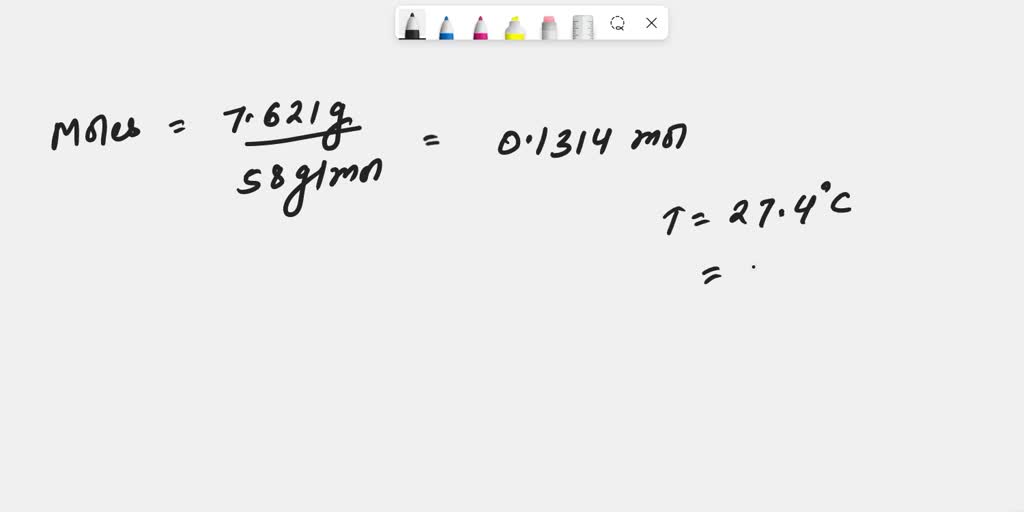 Moles = 7.621g / 58g/mol = 0.1314 mol
T = 27.4°C
=